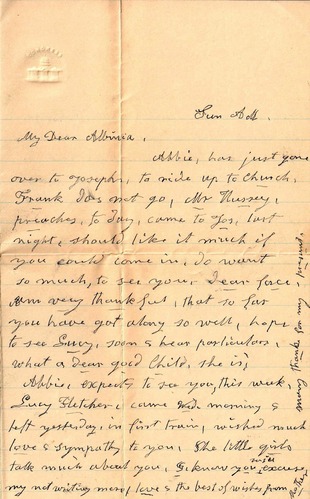 Sun AM.
My Dear Albinia,
Abbie, has just gone
over to Joseph's, to ride up to Church,
Frank does not go, Mr Hussey,
preaches, to day, came to Jos, last
night, should like it much if
you could come in, do want
so much, to see your dear face,
Am very thankful, that so far
you have got along so well, hope
to see Lucy, soon & hear particulars,
what a dear good Child, she is,
Abbie, expects to see you, this week,
Lucy Fletcher, came Wed morning &
left yesterday, in first train, wished much
love & sympathy to you, The little girls
talk much about you, I know you will excuse
my not writing more, love & the best of wishes from
many thanks for my